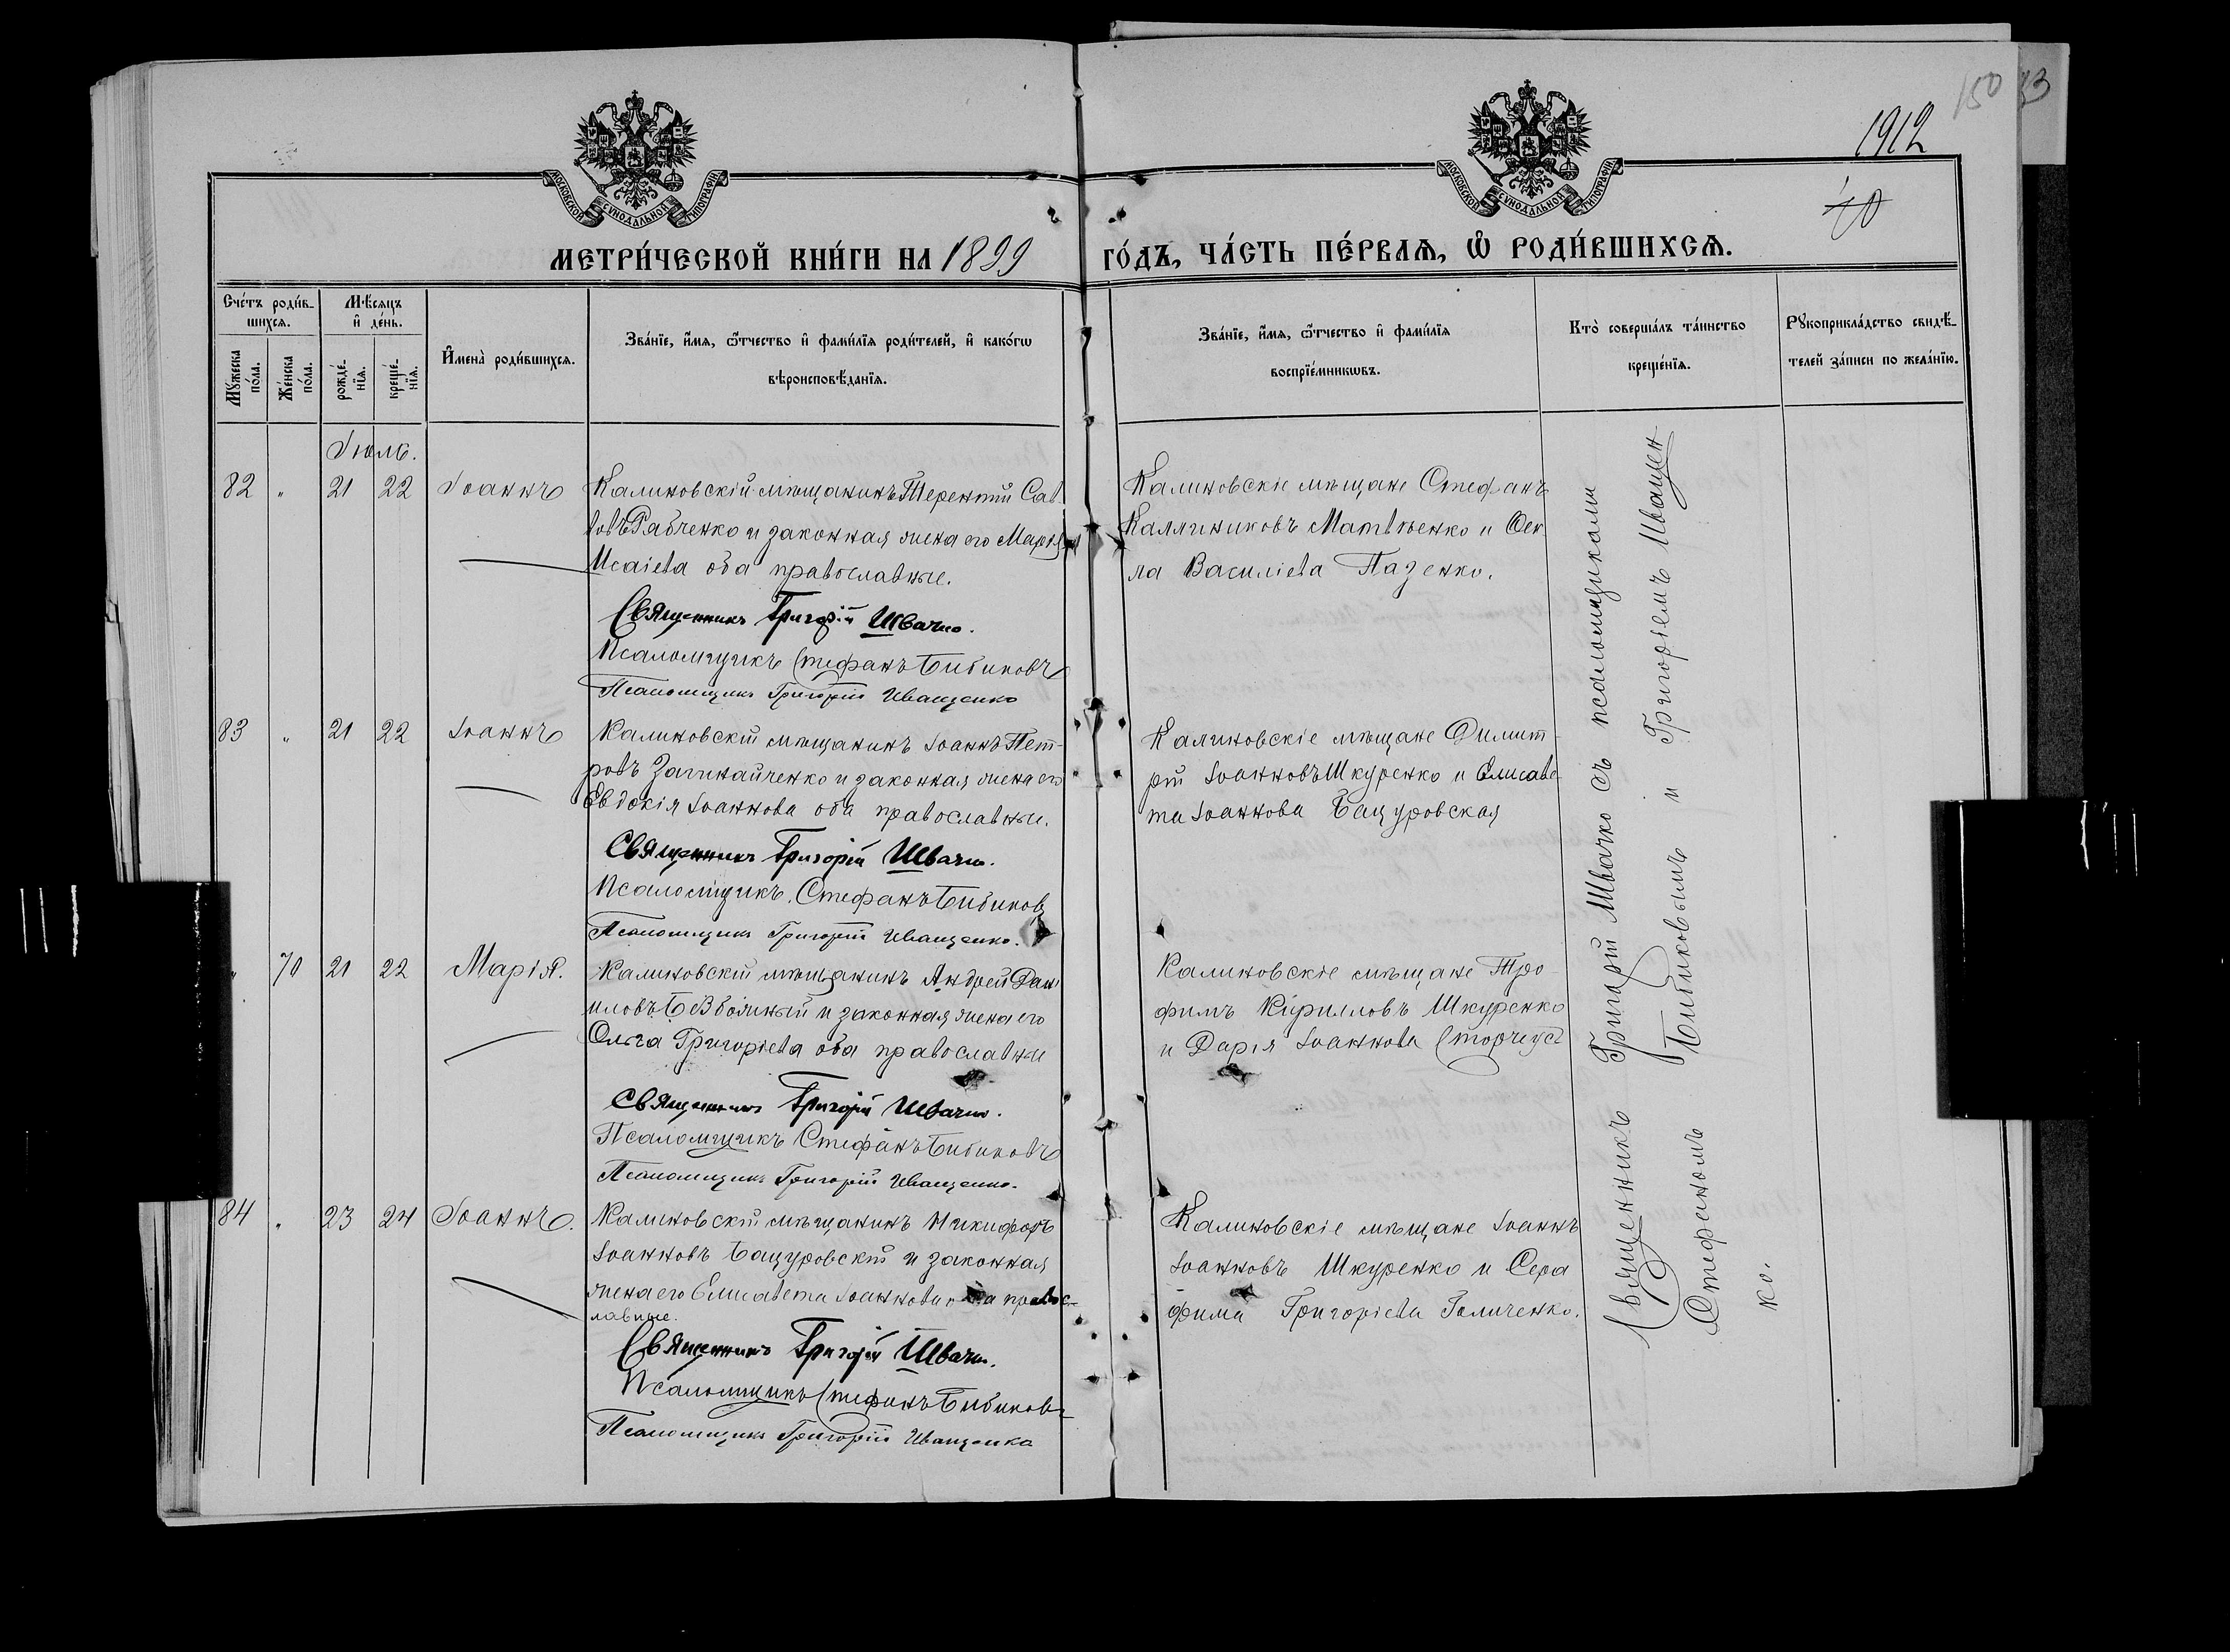 150
1912
МОСКОВСКОЙ СѴНОДАЛЬНОЙ ТИПОГРАФІИ
МОСКОВСКОЙ СѴНОДАЛЬНОЙ ТИПОГРАФІИ
МЕТРИ́ЧЕСКОЙ КНИ́ГИ НА 1899 ГО́ДЪ, ЧА́СТЬ ПЕ́РВАѦ, Ѡ РОДИ́ВШИХСѦ.
Сче́тъ роди́в-
шихсѧ.
Мꙋ́жеска
по́ла.
Же́нска
по́ла.
Мѣ́сѧцъ
и҆ де́нь.
рожде́-
нїѧ.
креще́-
нїѧ.
И҆мена̀ роди́вшихсѧ.
Зва́нїе, и҆́мѧ, ѻ҆́тчество и҆ фами́лїѧ роди́телей, и҆ како́гѡ
вѣроисповѣ́данїѧ.
Зва́нїе, и҆́мѧ, ѻ҆́тчество и҆ фами́лїѧ
воспрїе́мникѡвъ.
Кто̀ соверша́лъ та́инство
креще́нїѧ.
Рꙋкоприкла́дство свидѣ́-
телей за́писи по жела́нїю.
Іюль.
82 " 21 22 Іоаннъ
Калиновскій мѣщанинъ Терентій Сав
вовъ Рабченко и законная жена его Марія
Исаіева оба православные.
Священникъ Григорій Швачко.
Псаломщикъ Стефанъ Бибиковъ
Псаломщикъ Григорій Иващенко
Калиновскіе мѣщане Стефанъ
Каллиниковъ Матвѣенко и Ѳек
ла Василіева Пазенко.
83 " 21 22 Іоаннъ
Калиновскій мѣщанинъ Іоаннъ Пет-
ровъ Загинайченко и законная жена его
Евдокія Іоаннова оба православные.
Священникъ Григорій Швачко.
Псаломщикъ Стефанъ Бибиковъ
Псаломщикъ Григорій Иващенко.
Калиновскіе мѣщане Димит-
рій Іоанновъ Шкуренко и Елисаве
та Іоаннова Бацуровская
" 70 21 22 Марія.
Калиновскій мѣщанинъ Андрей Дан
иловъ и законная жена его
Ольга Григоріева оба православные
Священникъ Григорій Швачко.
Псаломщикъ Стефанъ Бибиковъ
Псаломщикъ Григорій Иващенко.
Калиновскіе мѣщане Тро-
фимъ Кирилловъ Шкуренко
и Дарія Іоаннова
84 " 23 24 Іоаннъ.
Калиновскій мѣщанинъ Никифоръ
Іоанновъ Бацуровскій и законная
жена его Елисавета Іоаннова оба правос-
лавные.
Священникъ Григорій Швачко.
Псаломщикъ Стефанъ Бибиковъ
Псаломщикъ Григорій Иващенко
Калиновскіе мѣщане Іоаннъ
Іоанновъ Шкуренко и Сера
фима Григоріева Галиченко.
Священникъ Григорій Швачко съ псаломщиками
Стефаномъ Бибиковымъ и Григоріемъ Иващен
ко.